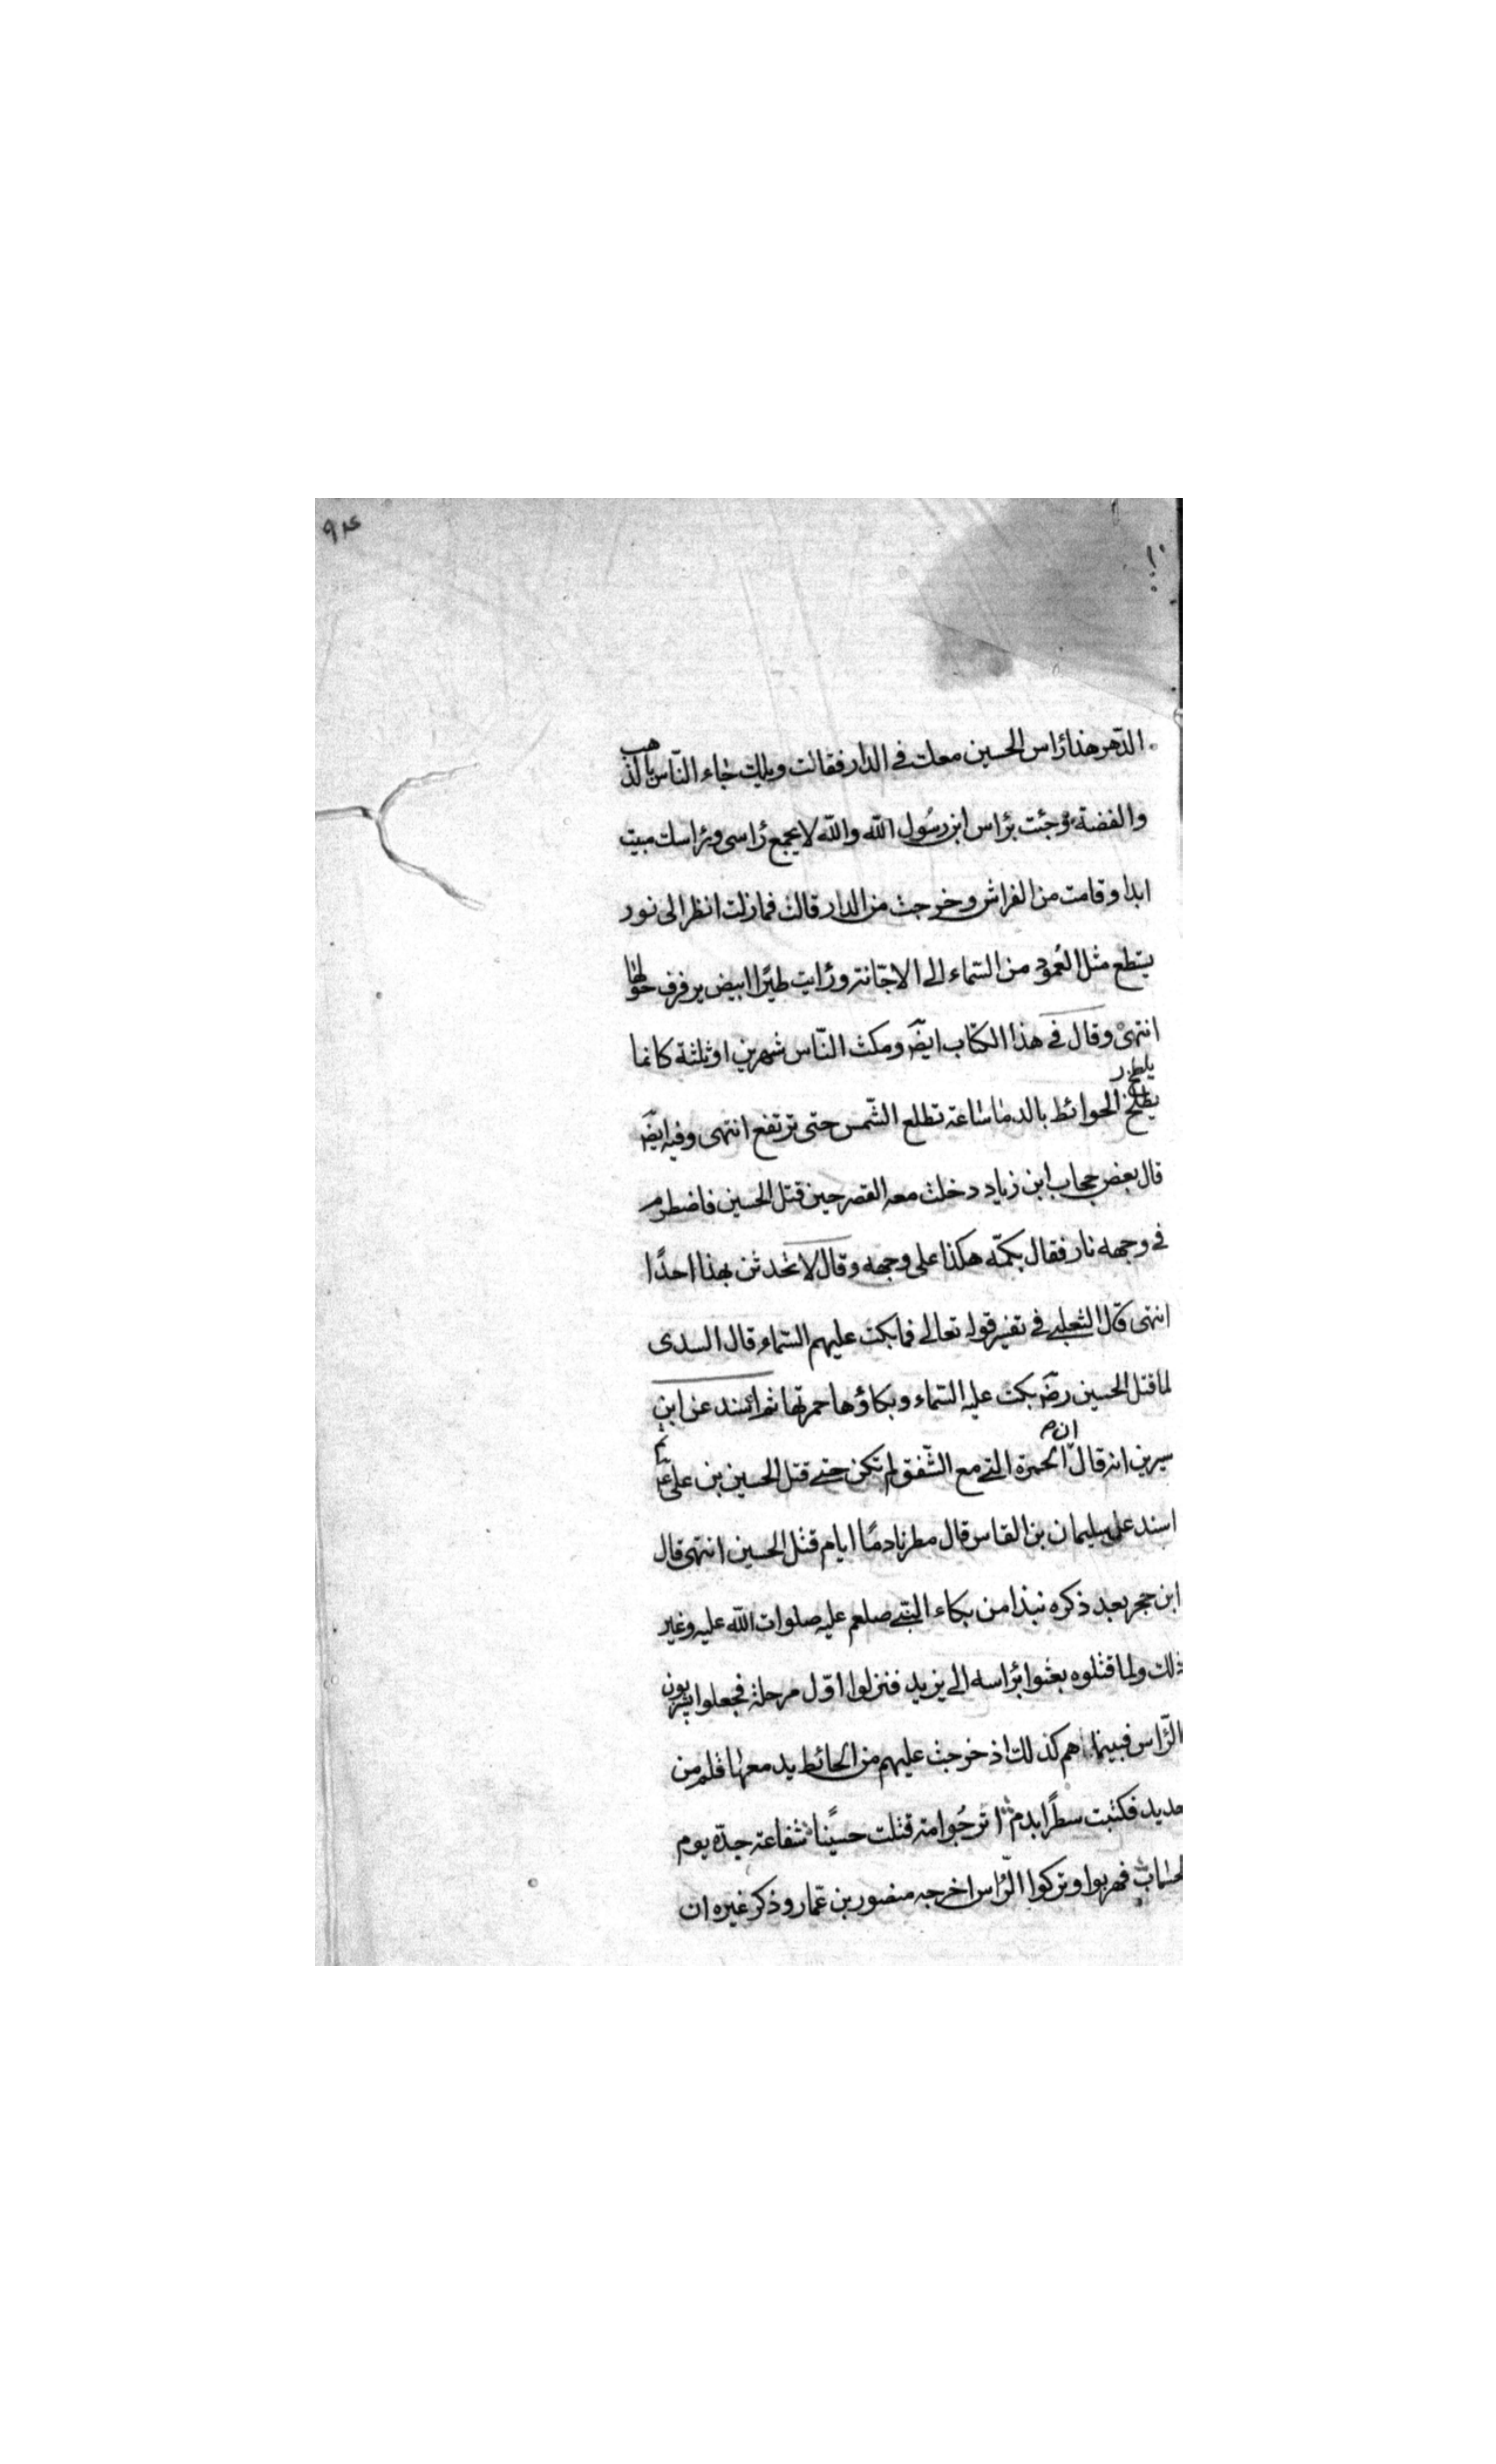 ۹۴
الدّهر هذا رٔاس الحسين معك فى الدار فقالت ويلك جاء النّاس بالذهب
والفضة وجئت برٔاس ابن رسُول اللّه واللّه لا يجمع رٔاسى ورٔاسك مبيت
ابدا وقامت من الفراش وخرجت من الدار قالت فمازلت انظر الى نور
يسطع مثل العُمود من السّماء الى الاجّانة ورٔايت طيرًا ابيض يرفرف حولها
انتهى وقال فى هذا الكتاب ايضَ ومكث النّاس شهرين او ثلثة كانما
يلطخ
يطلخ الحوائط بالدماء ساعة تطلع الشّمس حتى ترتفع انتهى وفيه ايضَ
قال بعض حجاب ابن زياد دخلت معه القصر حين قتل الحسين فاضطرم
فى وجهه نار فقال بكمّه هكذا على وجهه وقال لا تحدثن بهذا احدًا
انتهى قال الثعلبى فى تفسير قوله تعالى فما بكت عليهم السّماء قال السدى
لما قتل الحسين رضَ بكت عليه السّماء وبكاؤها حمرتها ثم اسند عن ابن
ان
سيرين انه قال الحمرة التى مع الشّفق لم تكن حتى قتل الحسين بن على ع
اسند على سليمان بن القاس قال مطرنا دمًا ايام قتل الحسين انتهى قال
ابن حجر بعد ذكره نبذا من بكاء النبىّ صلعم عليه صلوات اللّه عليه وغير
ذلك ولما قتلوه بعثوا برٔاسه الى يزيد فنزلوا اوّل مرحلة فجعلوا يشربون
الرّٔاس فبينما هم كذلك اذ خرجت عليهم من الحائط يد معها قلم من
حديد فكتبت سطرًا بدم اترجُوا امة قتلت حسينًا شفاعة جدّه يوم
الحساب فهربوا وتركوا الرّٔاس اخرجه منصور بن عمّار وذكر غيره ان